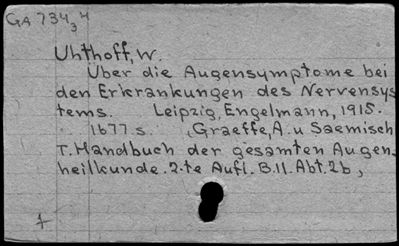 GA 734,34
Uhthoff, W.
Über die Augensymptome bei
den Erkrankungen des Nervensys
tems. Leipzig, Engelmann, 1915.
1677 s. (Graeffe, A. u Saemisch
T. Handbuch der gesamten Augen-
heilkunde. 2.te Aufl. B.11. Abt. 2b,
1